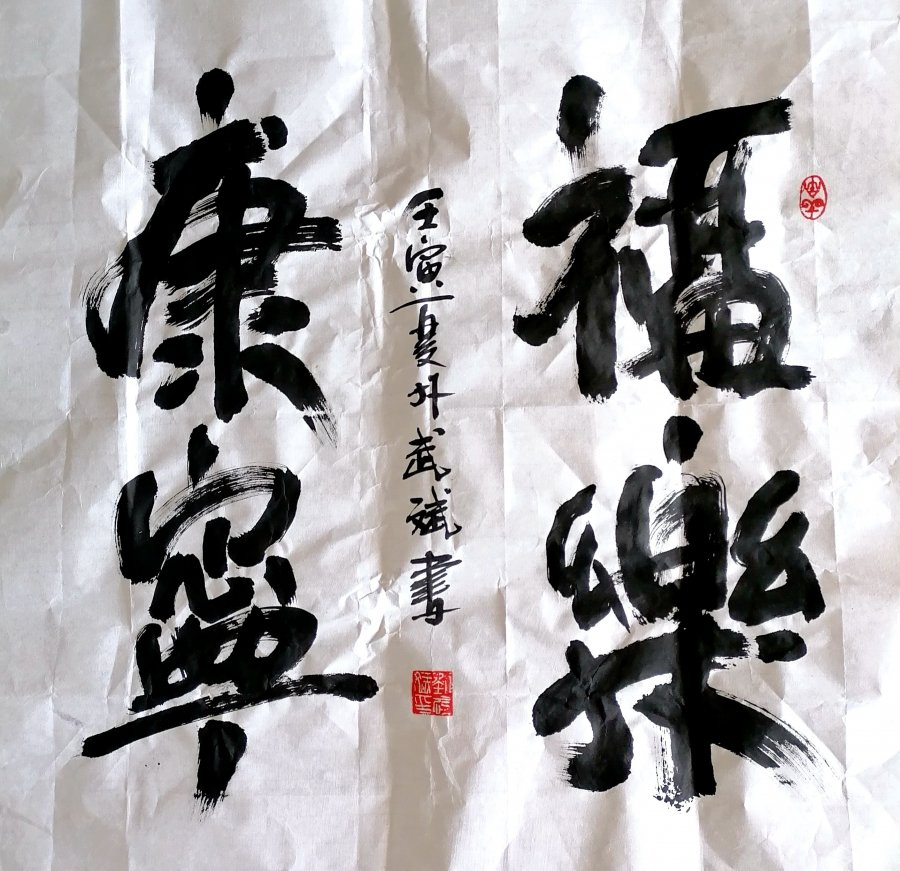 福樂
康寧
壬寅夏武斌書